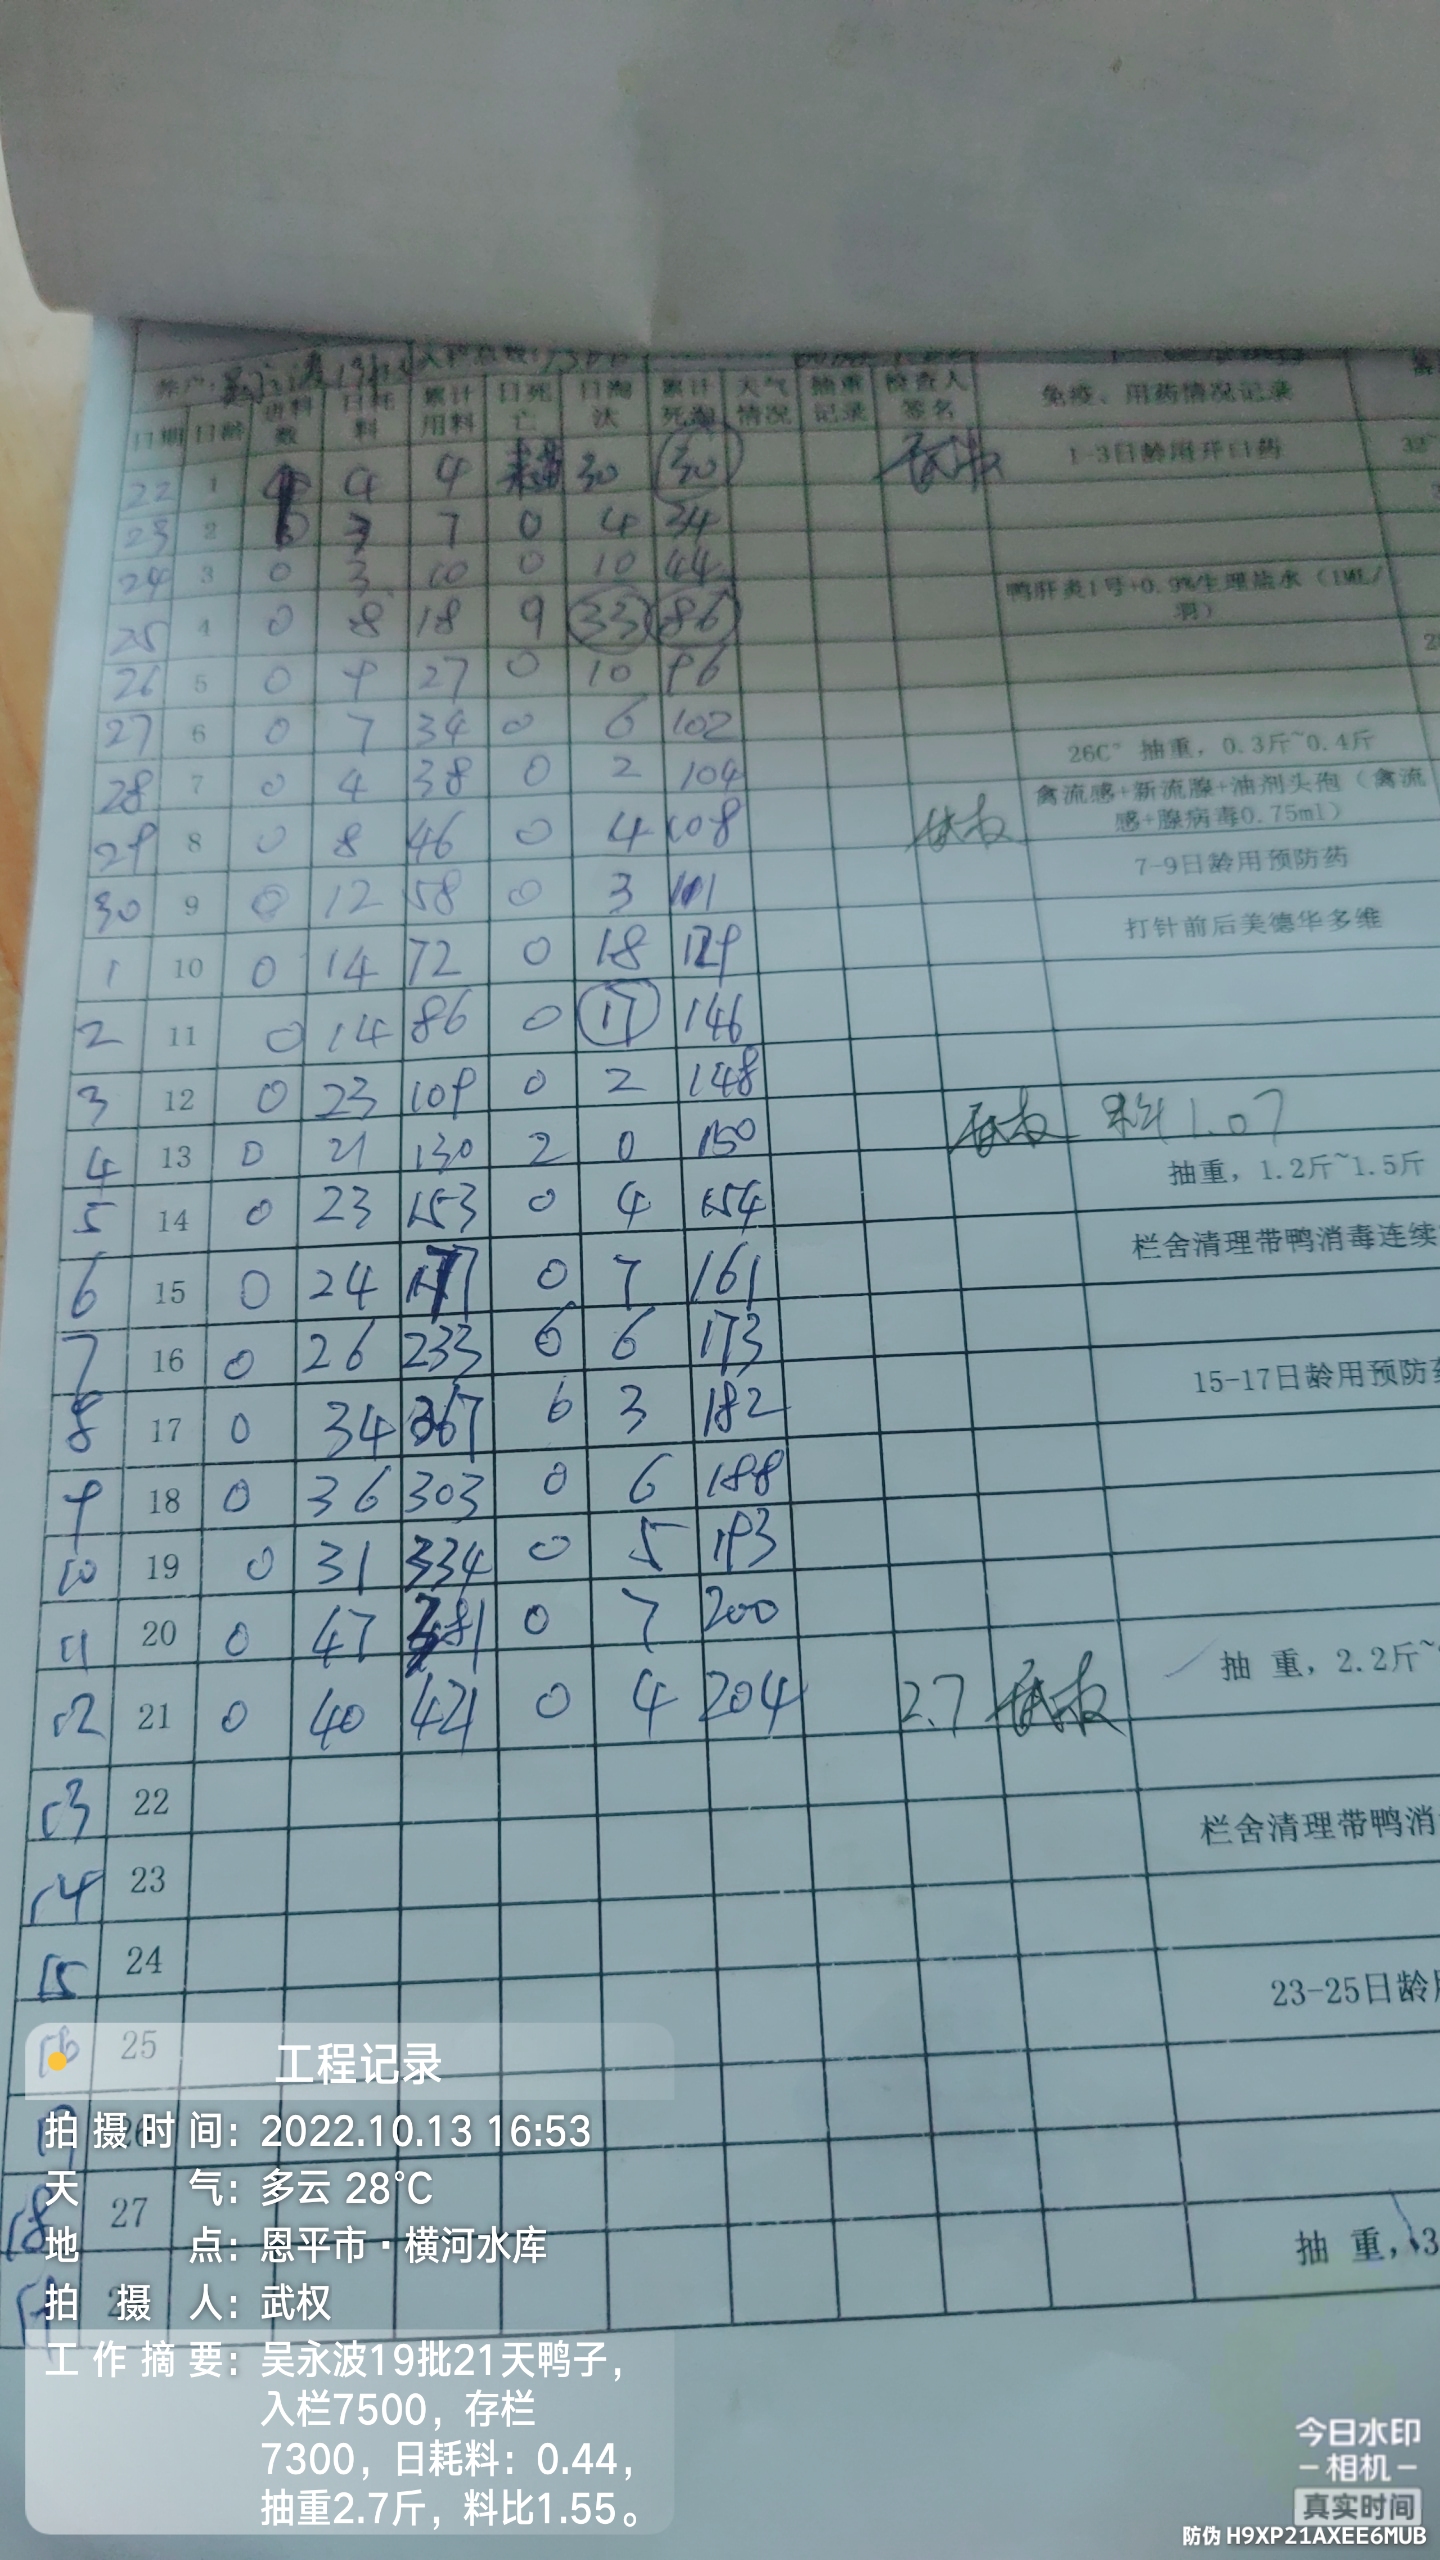 日期 日龄 进料数 日耗料 累计用料 日死亡 日淘汰 累计死淘 天气情况 抽重记录 检查人签名 免疫、用药情况记录
22 1 4 4 30 30 1-3日龄用开口药
23 2 7 0 4 34
24 3 0 3 10 0 10 44
25 4 0 8 18 9 33 86 鸭肝炎1号+0.9%生理盐水（1ML/羽）
26 5 0 9 27 0 10 96
27 6 0 7 34 0 6 102
28 7 0 4 38 0 2 104 26C° 抽重，0.3斤~0.4斤
29 8 0 8 46 0 4 108 禽流感+新流腺+油剂头孢（禽流感+腺病毒0.75ml）
30 9 0 12 58 0 3 7-9日龄用预防药
1 10 0 14 72 0 18 129 打针前后美德华多维
2 11 0 14 86 0 17 146
3 12 0 23 109 0 2 148
4 13 0 21 130 2 0 150 料1.07
5 14 0 23 153 0 4 154 抽重，1.2斤~1.5斤
6 15 0 24 177 0 7 161 栏舍清理带鸭消毒连续
7 16 0 26 233 6 6 173
8 17 0 34 6 3 182 15-17日龄用预防药
9 18 0 36 303 0 6 188
10 19 0 31 334 0 5 193
11 20 0 47 381 0 7 200
12 21 0 40 421 0 4 204 2.7 武权 抽 重，2.2斤~
13 22
14 23 栏舍清理带鸭消
15 24
16 25 23-25日龄
17 26
18 27
抽 重，3
工程记录
拍摄时间：2022.10.13 16:53
天气：多云 28℃
地点：恩平市·横河水库
拍摄人：武权
工作摘要：吴永波19批21天鸭子，
入栏7500，存栏
7300，日耗料：0.44，
抽重2.7斤，料比1.55。
今日水印
相机
真实时间
防伪 H9XP21AXEE6MUB